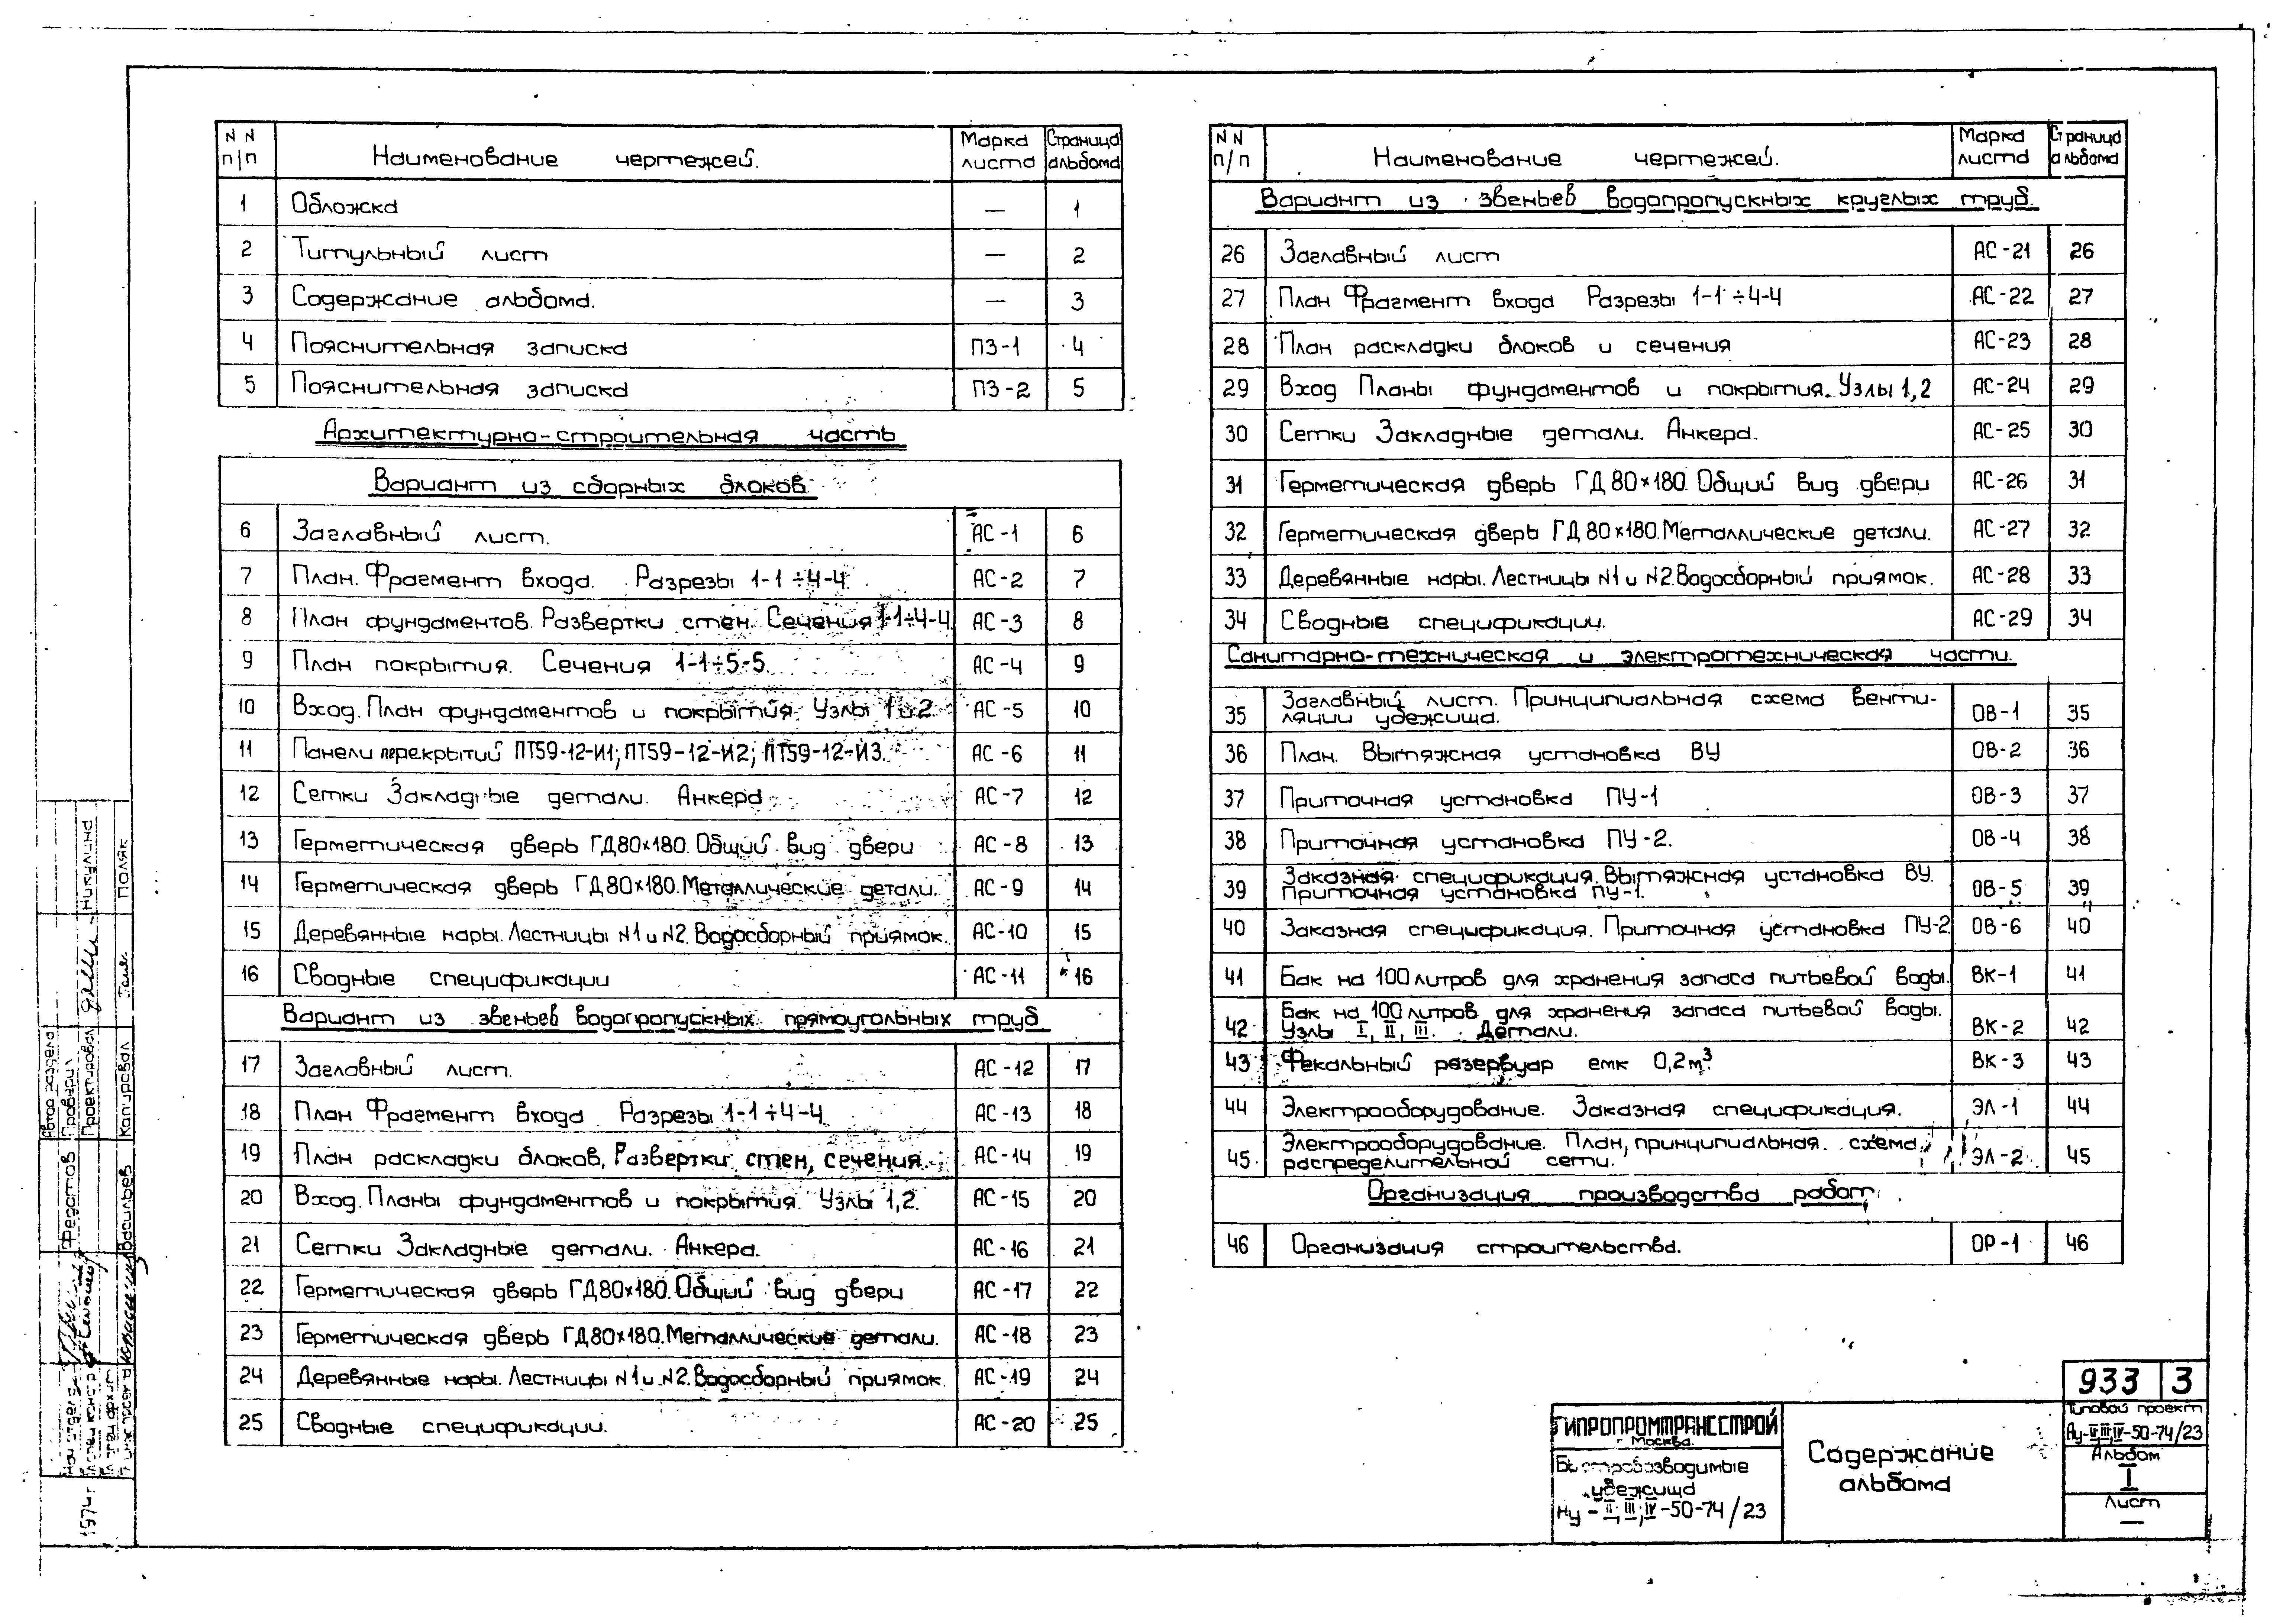 N N п/п Наименование чертежей. Марка листа Страница альбома
1 Обложка — 1
2 Титульный лист — 2
3 Содержание альбома. — 3
4 Пояснительная записка ПЗ-1 4
5 Пояснительная записка ПЗ-2 5
Архитектурно-строительная часть
Вариант из сборных блоков
6 Заглавный лист. АС-1 6
7 План. Фрагмент входа. Разрезы 1-1÷4-4 АС-2 7
8 План фундаментов. Развертки стен. Сечения 1-1÷4-4 АС-3 8
9 План покрытия. Сечения 1-1÷5-5. АС-4 9
10 Вход. План фундаментов и покрытия. Узлы 1 и 2 АС-5 10
11 Панели перекрытий ПТ59-12-И1; ПТ59-12-И2; ПТ59-12-И3. АС-6 11
12 Сетки Закладные детали. Анкера АС-7 12
13 Герметическая дверь ГД80×180. Общий вид двери АС-8 13
14 Герметическая дверь ГД80×180. Металлические детали. АС-9 14
15 Деревянные нары. Лестницы N1 и N2. Водосборный приямок. АС-10 15
16 Сводные спецификации АС-11 16
Вариант из звеньев водопропускных прямоугольных труб
17 Заглавный лист. АС-12 17
18 План Фрагмент входа Разрезы 1-1÷4-4 АС-13 18
19 План раскладки блоков, Развертки стен, сечения. АС-14 19
20 Вход. Планы фундаментов и покрытия. Узлы 1,2. АС-15 20
21 Сетки Закладные детали. Анкера. АС-16 21
22 Герметическая дверь ГД80×180. Общий вид двери АС-17 22
23 Герметическая дверь ГД80×180. Металлические детали. АС-18 23
24 Деревянные нары. Лестницы N1 и N2. Водосборный приямок. АС-19 24
25 Сводные спецификации. АС-20 25
N N п/п Наименование чертежей. Марка листа Страница альбома
Вариант из звеньев водопропускных круглых труб.
26 Заглавный лист АС-21 26
27 План Фрагмент входа Разрезы 1-1÷4-4 АС-22 27
28 План раскладки блоков и сечения АС-23 28
29 Вход Планы фундаментов и покрытия. Узлы 1,2 АС-24 29
30 Сетки Закладные детали. Анкера. АС-25 30
31 Герметическая дверь ГД80×180. Общий вид двери АС-26 31
32 Герметическая дверь ГД80×180. Металлические детали. АС-27 32
33 Деревянные нары. Лестницы N1 и N2. Водосборный приямок. АС-28 33
34 Сводные спецификации. АС-29 34
Санитарно-техническая и электротехническая части.
35 Заглавный лист. Принципиальная схема венти-
ляции убежища. ОВ-1 35
36 План. Вытяжная установка ВУ ОВ-2 36
37 Приточная установка ПУ-1 ОВ-3 37
38 Приточная установка ПУ-2. ОВ-4 38
39 Заказная спецификация. Вытяжная установка ВУ.
Приточная установка ПУ-1. ОВ-5 39
40 Заказная спецификация. Приточная установка ПУ-2 ОВ-6 40
41 Бак на 100 литров для хранения запаса питьевой воды. ВК-1 41
42 Бак на 100 литров для хранения запаса питьевой воды.
Узлы I, II, III. Детали. ВК-2 42
43 Фекальный резервуар емк 0,2м³. ВК-3 43
44 Электрооборудование. Заказная спецификация. ЭЛ-1 44
45 Электрооборудование. План, принципиальная схема
распределительной сети. ЭЛ-2 45
Организация производства работ
46 Организация строительства. ОР-1 46
933 3
ГИПРОПРОМТРАНССТРОЙ
г Москва.
Быстровозводимые
убежища
Ну-II, III, IV-50-74/23
Содержание
альбома
Типовой проект
Ау-II, III, IV-50-74/23
Альбом
I
Лист
—
Автор раздела
Проверил
Проектировал Никулина
Копировал Поляк
Федотов
Васильев
1974г